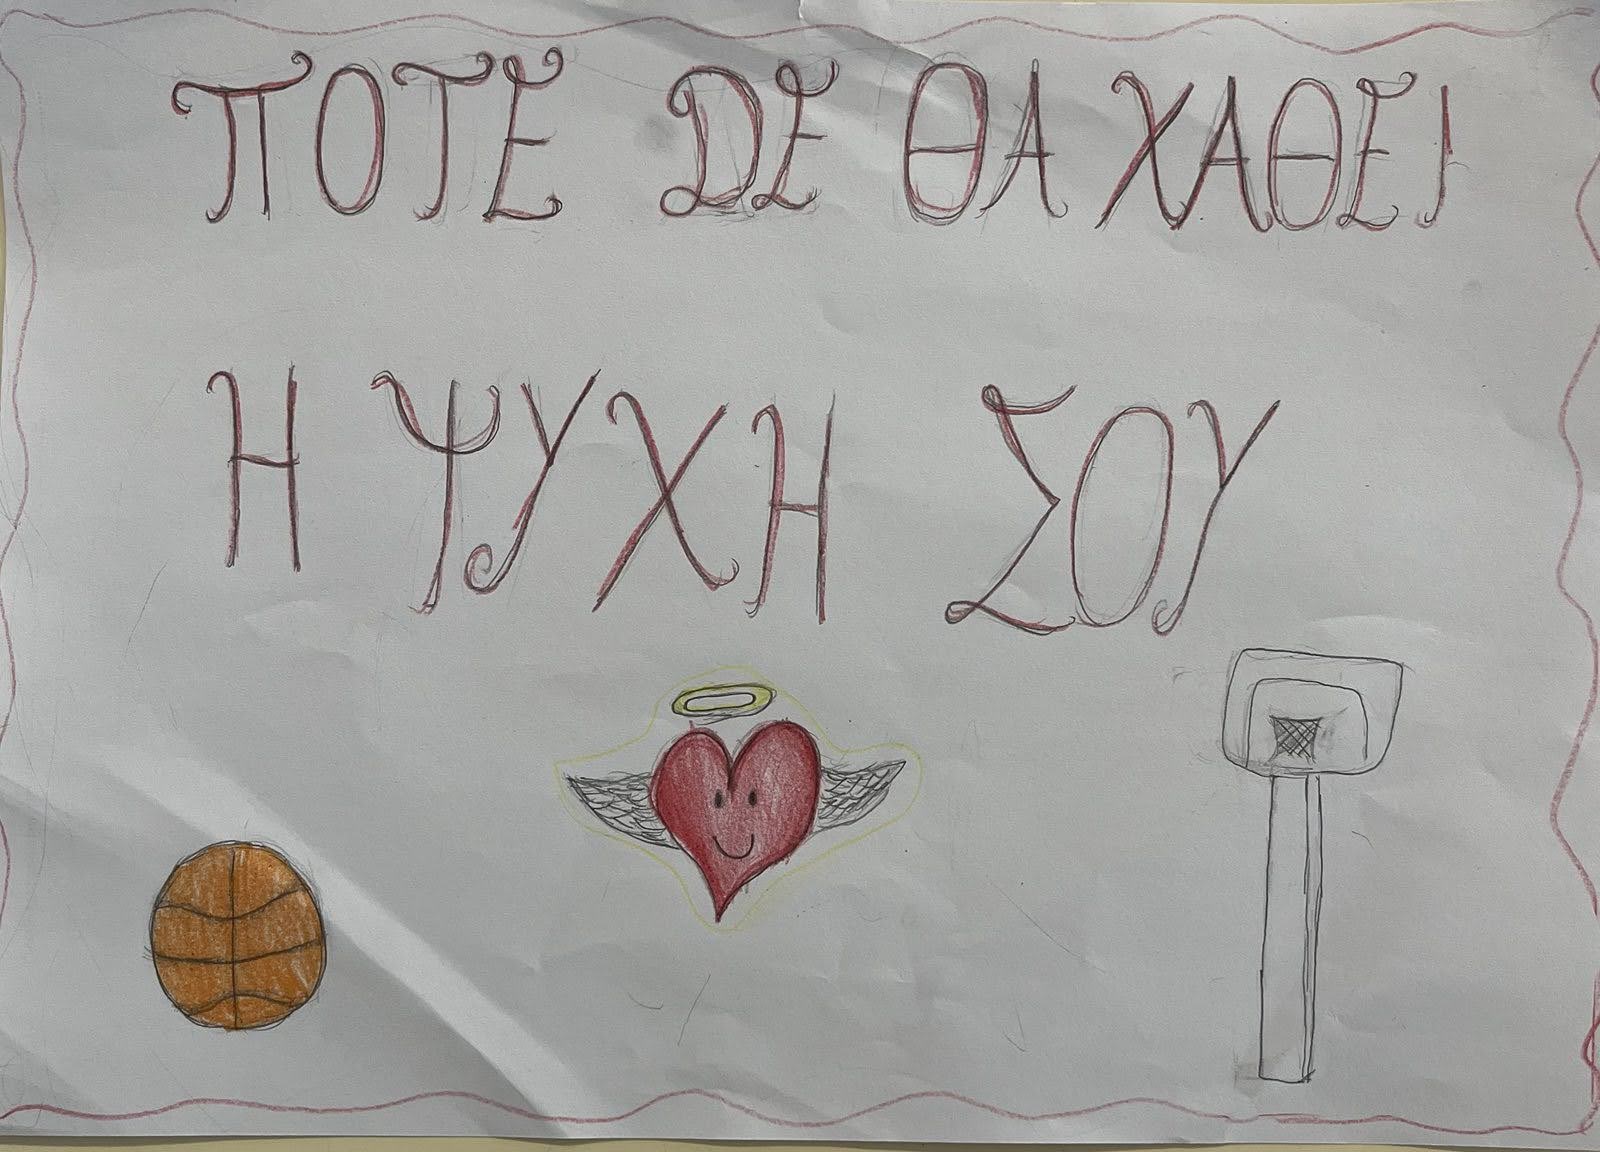 ΠΟΤΕ DΕ ΘΑ ΧΑΘΕΙ
Η ΨΥΧΗ ΣΟΥ